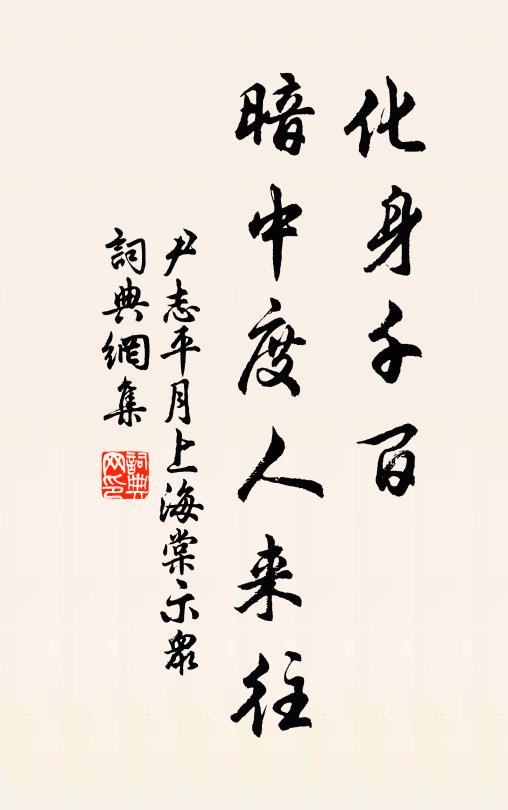 化身千百
暗中度人来往
尹志平月上海棠示眾
詞典網集
詞典
网印